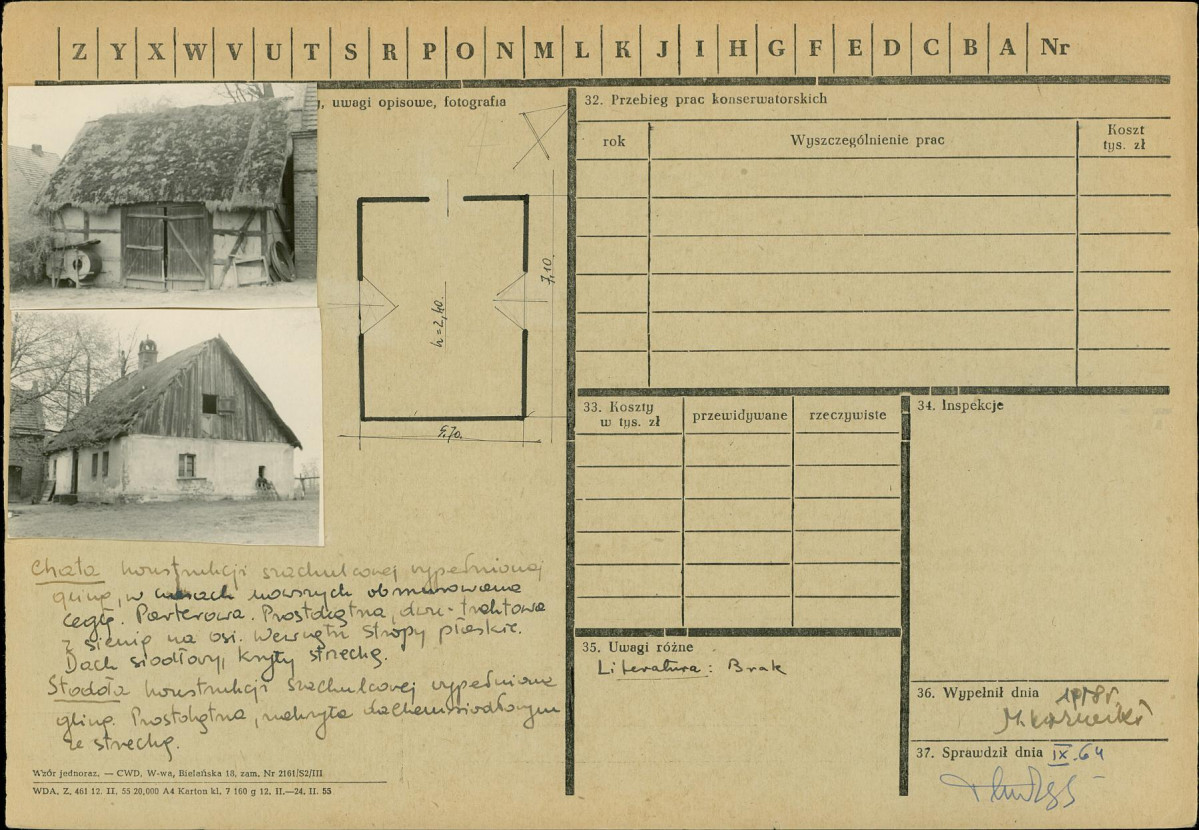 Z Y X W V U T S R P O N M L K J I H G F E D C B A Nr
, uwagi opisowe, fotografia
7,10.
h=2,40.
5,70.
Chata konstrukcji szachulcowej wypełnionej
gliną, w czasach nowszych obmurowana
cegłą. Parterowa. Prostokątna, dwu-traktowa
z sienią na osi. Wewnątrz stropy płaskie.
Dach siodłowy, kryty strzechą.
Stodoła konstrukcji szachulcowej wypełniona
gliną. Prostokątna, nakryta dachem siodłowym
ze strzechą.
Wzór jednoraz. — CWD, W-wa, Bielańska 18, zam. Nr 2161/S2/III
WDA. Z. 461 12. II. 55 20,000 A4 Karton kl. 7 160 g 12. II.—24. II. 55
32. Przebieg prac konserwatorskich
rok
Wyszczególnienie prac
Koszt
tys. zł
33. Koszty
w tys. zł
przewidywane
rzeczywiste
34. Inspekcje
35. Uwagi różne
Literatura: Brak
36. Wypełnił dnia
M.
37. Sprawdził dnia IX.64